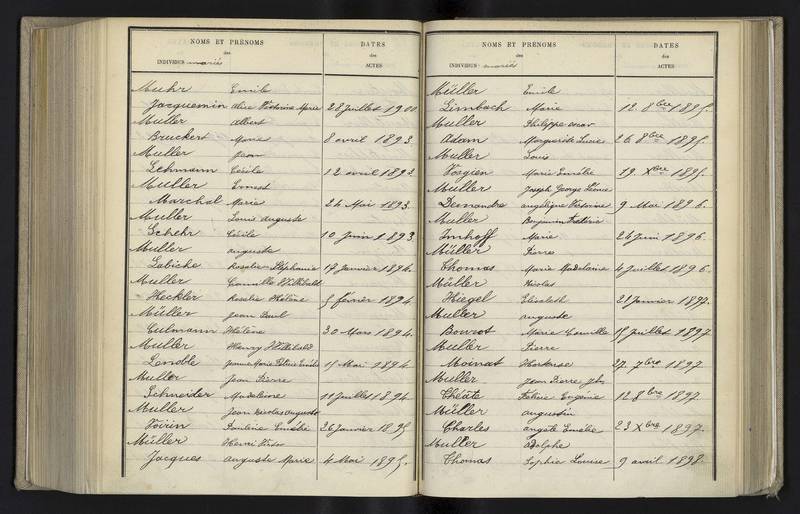 NOMS ET PRÉNOMS DATES
des des
INDIVIDUS mariés ACTES
Muhr Emile
Jacquemin Alice Victorine Marie 28 Juillet 1900
Muller Albert
Bruckert Marie 8 avril 1893.
Muller Jean
Lehmann Cécile 12 avril 1893.
Muller Ernest
Marchal Marie 24 Mai 1893.
Muller Louis Auguste
Schehr Cécile 10 Juin 1893
Muller Auguste
Labiche Rosalie Stéphanie 17 Janvier 1894.
Muller Camille Willibald
Heckler Rosalie Hélène 5 février 1894
Müller Jean Paul
Culmann Hélène 30 Mars 1894.
Muller Henry Willibald
Lenoble Jeanne Marie 15 Mai 1894
Muller Jean Pierre
Schneider Madeleine 11 Juillet 1894.
Muller Jean Nicolas Auguste
Voirin 26 Janvier 1895
Müller Henri
Jacques Auguste Marie 4 Mai 1895.
NOMS ET PRÉNOMS DATES
des des
INDIVIDUS mariés ACTES
Müller Emile
Limbach Marie 12 8bre 1895.
Muller Philippe Oscar
Adam Marguerite Lucie 26 8bre 1895.
Muller Louis
Vosgien Marie Emélie 19 Xbre 1895.
Muller Joseph George
Demandre Angélique 9 Mai 1896.
Muller Benjamin Frédéric
Imhoff Marie 26 Juin 1896.
Müller Pierre
Thomas Marie Madeleine 4 Juillet 1896.
Müller Nicolas
Hiegel Elisabeth 21 Janvier 1897.
Muller Auguste
Bourot Marie Camille 15 Juillet 1897
Muller Pierre
Moinat Hortense 27 7bre 1897
Muller Jean Pierre
Théâte Eugénie 12 8bre 1897
Müller Augustin
Charles Emélie 23 Xbre 1897.
Muller Adolphe
Thomas Sophie Louise 9 avril 1898.